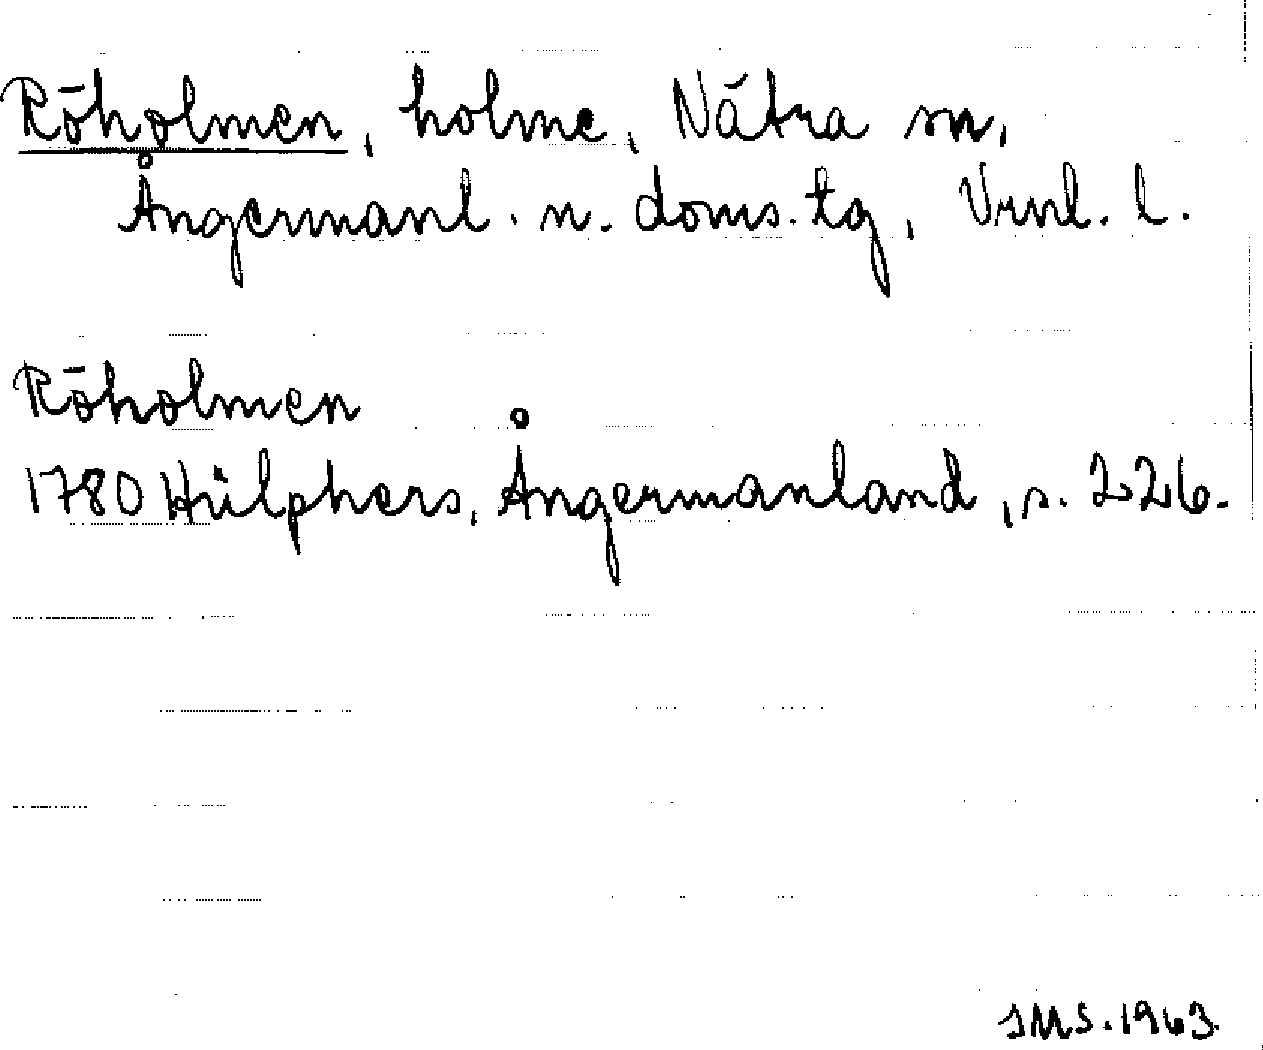 Röholmen, holme, Nätra sn,
Ångermanl. n. doms. tg, Vrnl. l.
Röholmen
1780 Hülphers, Ångermanland, s. 226.
IMS. 1963.